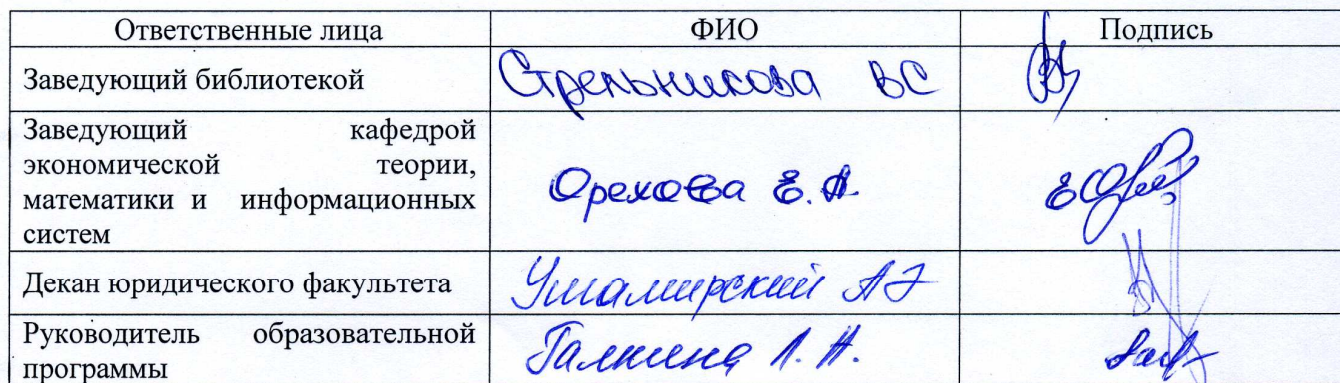 Ответственные лица ФИО Подпись
Заведующий библиотекой Стрельникова ВС
Заведующий кафедрой
экономической теории,
математики и информационных
систем
Орехова Е.А.
Декан юридического факультета Ушамирский АЭ
Руководитель образовательной
программы
Галкина Л. Н.